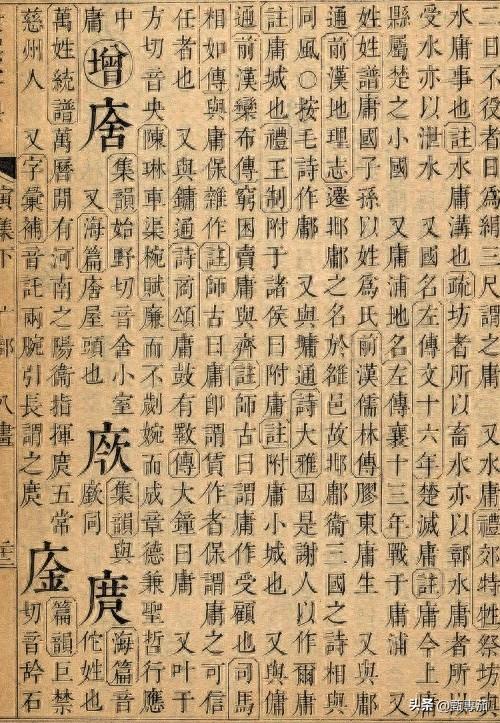 二日不役者日爲絹三尺謂之庸 又水庸禮郊特牲祭坊
水庸事也註水庸溝也疏坊者所以畜水亦以鄣水庸者所以
受水亦以泄水 又國名左傳文十六年楚滅庸註庸今上庸
縣屬楚之小國 又庸浦地名左傳襄十三年戰于庸浦 又
姓姓譜庸國子孫以姓爲氏前漢儒林傳膠東庸生 又與鄘
通前漢地理志遷邶鄘之名於雒邑故邶鄘衞三國之詩相與
同風○按毛詩作鄘 又與墉通詩大雅因是謝人以作爾庸
註庸城也禮王制附于諸侯曰附庸註附庸小城也 又與傭
通前漢欒布傳窮困賣庸與齊註師古曰謂庸作受顧也司馬
相如傳與庸保雜作註師古曰庸卽謂賃作者保謂庸之可信
任者也 又與鏞通詩商頌庸鼓有斁傳大鐘曰庸 又叶于
方切音央陳琳車渠椀賦廉而不劌婉而成章德兼聖哲行應
中
庸
增
集韻始野切音舍小室
又海篇屋頭也
集韻與
同
庹
海篇音
佗姓也
萬姓統譜萬曆閒有河南之陽衞指揮庹五常
慈州人 又字彙補音託兩腕引長謂之庹
篇韻巨禁
切音 石
寅集下 广部 八畫
头条 @甄專加